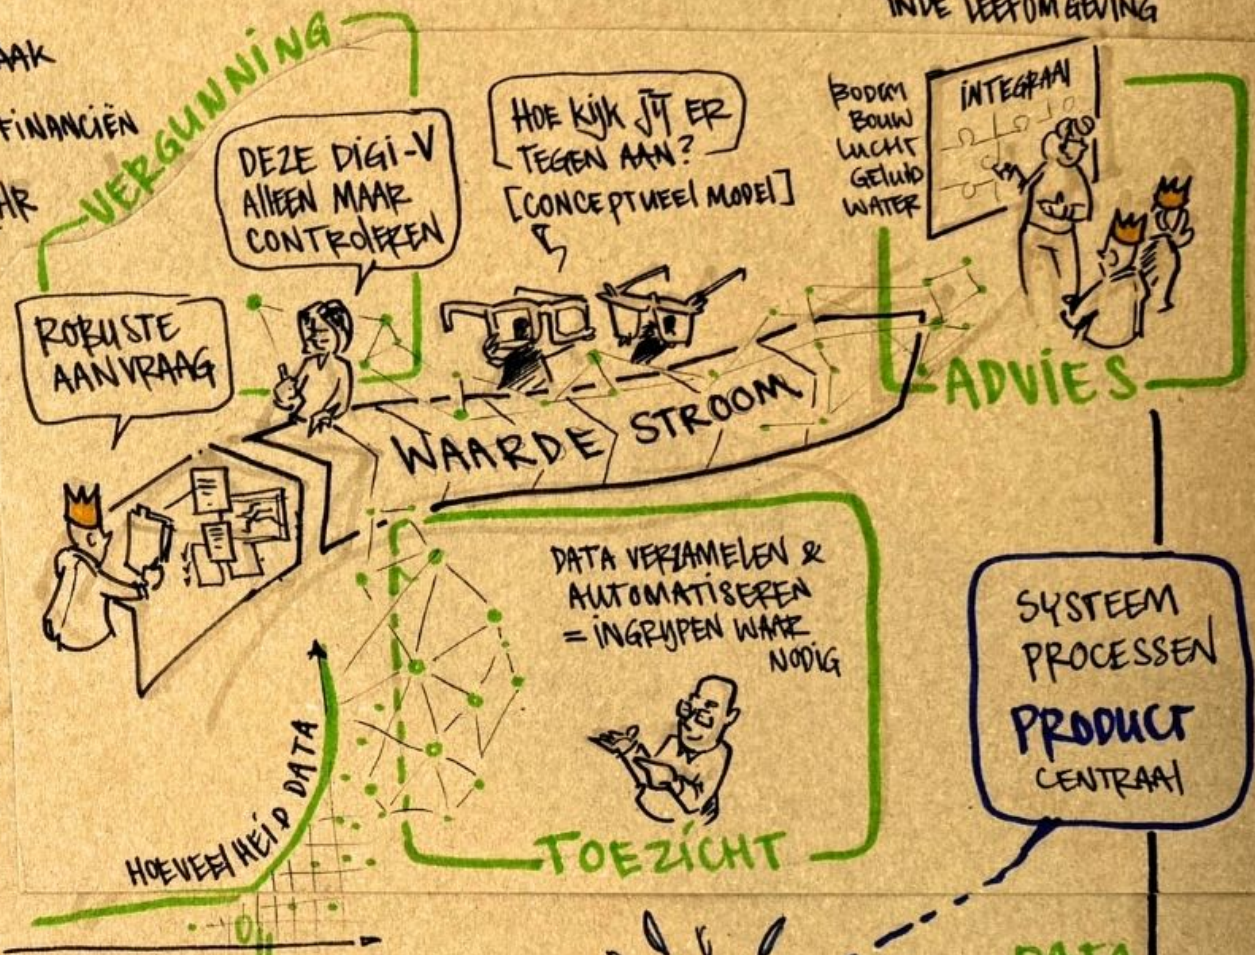 AAK
FINANCIËN
VERGUNNING
IN DE LEEFOMGEVING
DEZE DIGI-V
ALLEEN MAAR
CONTROLEREN
HOE KIJK JIJ ER
TEGEN AAN?
[CONCEPTUEEL MODEL]
BODEM
BOUW
LUCHT
GELUID
WATER
INTEGRAAL
ROBUSTE
AANVRAAG
WAARDE STROOM
ADVIES
DATA VERZAMELEN &
AUTOMATISEREN
= INGRIJPEN WAAR
NODIG
TOEZICHT
SYSTEEM
PROCESSEN
PRODUCT
CENTRAAL
HOEVEELHEID DATA
DATA